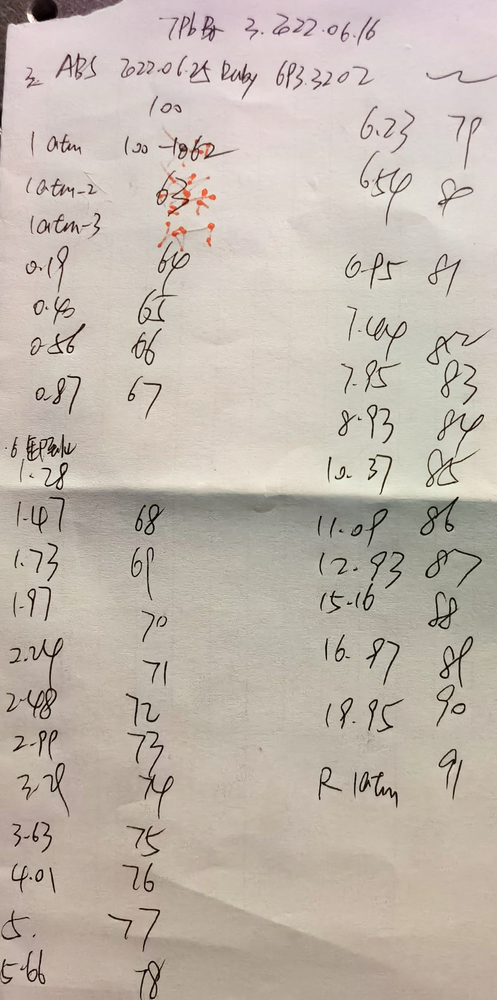 3. 2022.06.16
3. ABS 2022.06.25 Ruby 693.3202
100
1 atm 100
1atm-2 63
1atm-3
0.19 64
0.40 65
0.56 66
0.87 67
1.28
1.47 68
1.73 69
1.97 70
2.24 71
2.48 72
2.99 73
3.29 74
3.63 75
4.01 76
5. 77
5.66 78
6.23 79
6.54 80
6.95 81
7.44 82
7.95 83
8.93 84
10.37 85
11.09 86
12.93 87
15.16 88
16.97 89
18.95 90
R 1atm 91